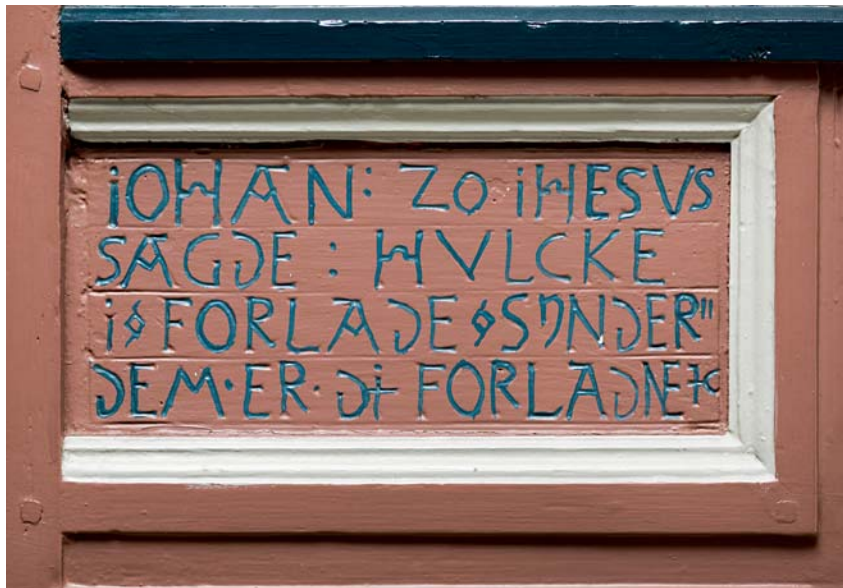 iOHAN: ZO iHESVS
SAGDE : HVLCKE
i ◊ FORLADE ◊ SYNDER"
DEM·ER·Di FORLADNE ⁊c